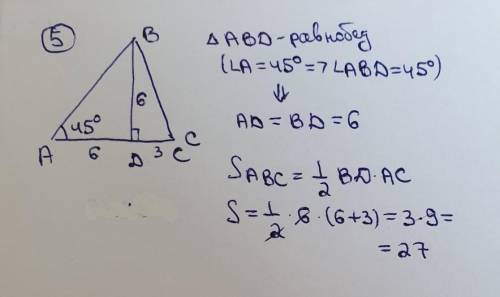 5
B
45°
6
A
6
D
3
C
C
Δ ABD - равнобед
(∠A = 45° => ∠ABD = 45°)
⇓
AD = BD = 6
S ABC = 1/2 BD · AC
S = 1/2 · 6 · (6+3) = 3 · 9 =
= 27